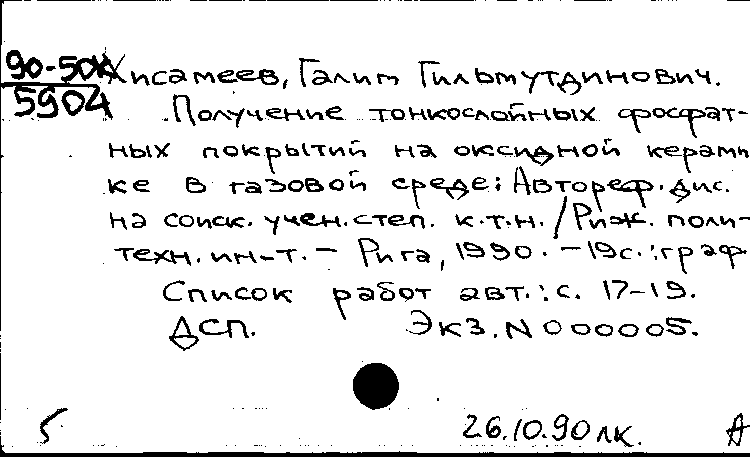 90-50к Хисамеев, Галим Гильмутдинович.
5904 Получение тонкослойных фосфат-
ных покрытий на оксидной керами
ке в газовой среде: Автореф. дис.
на соиск. учен. степ. к.т.н. / Риж. поли-
техн. ин-т. - Рига, 1990. - 19с.: граф
Список работ авт.: с. 17-19.
ДСП. Экз. N 000005.
5 26.10.90 лк. А